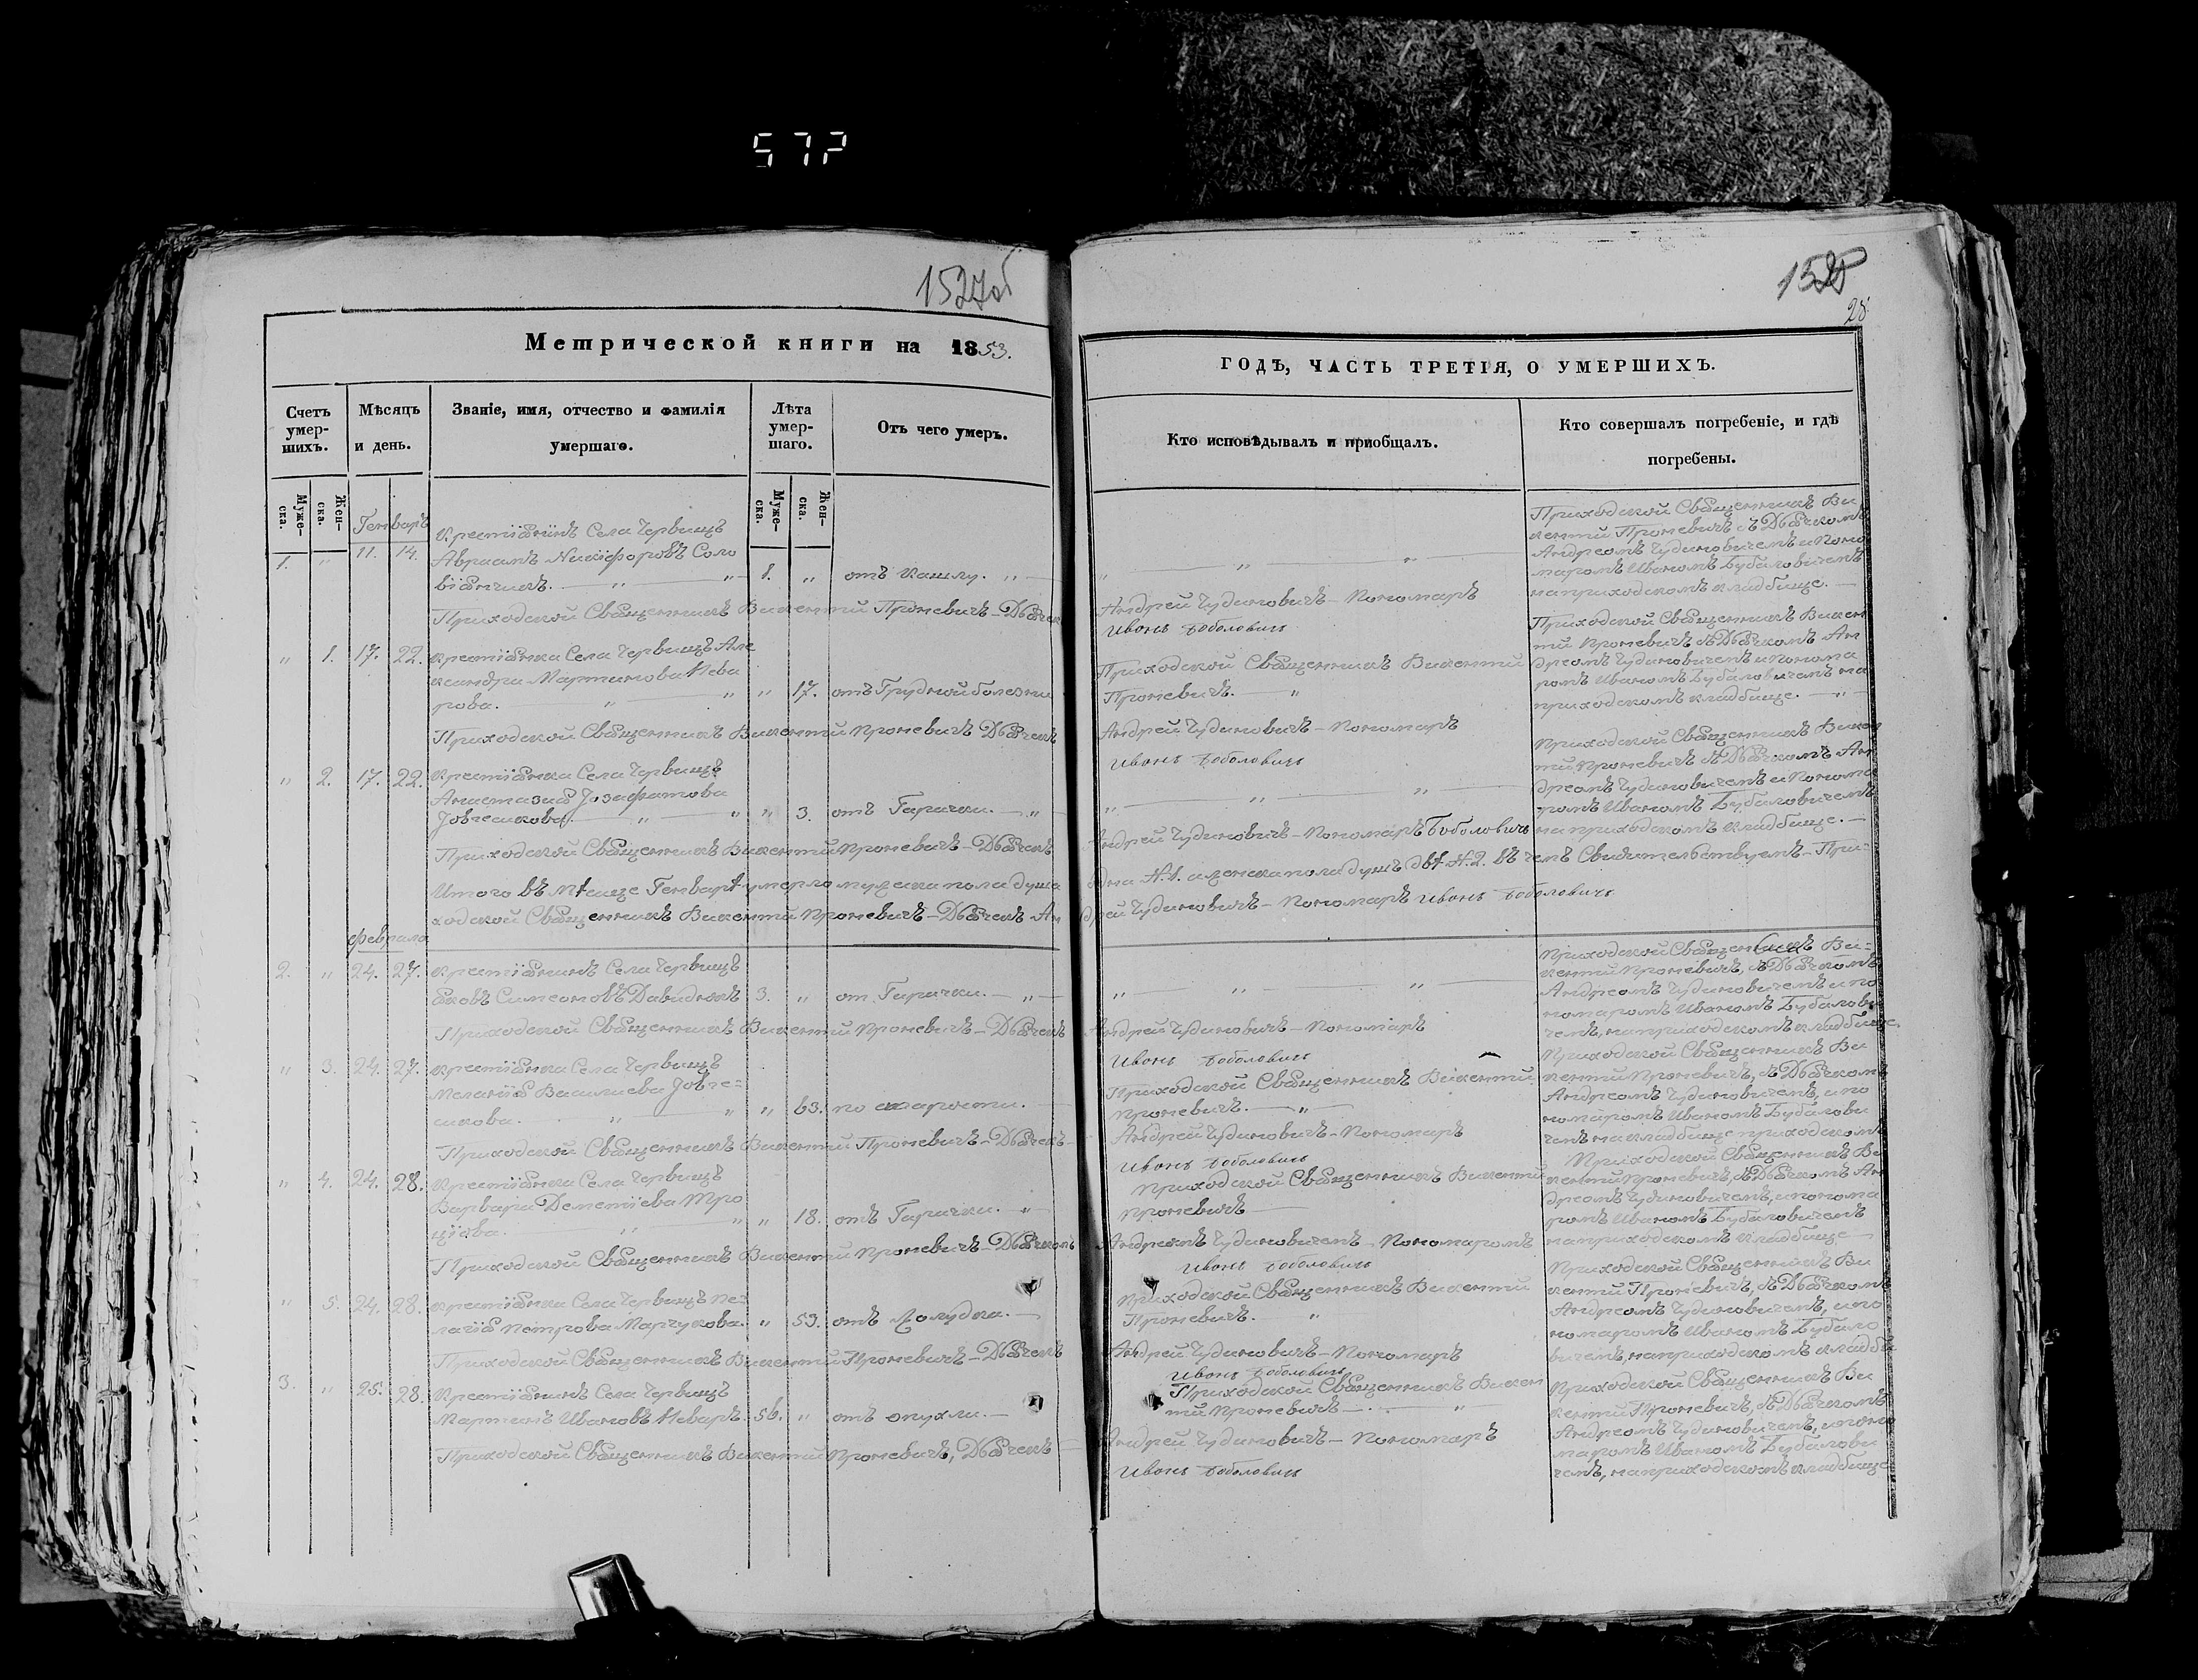 572
1527об
1528
28.
Метрической книги на 1853.
ГОДѢ, ЧАСТЬ ТРЕТІЯ, О УМЕРШИХЪ.
Счетъ умер-шихъ.
Мѣсяцъ и день.
Званіе, имя, отчество и фамилія умершаго.
Лѣта умер-шаго.
Отъ чего умеръ.
Кто исповѣдывалъ и пріобщалъ.
Кто совершалъ погребеніе, и гдѣ погребены.
Муже-ска.
Жен-ска.
Муже-ска.
Жен-ска.
Генварь
1. " 11. 14.
Крестіянинъ Села Червищъ
Авраамъ Никифоровъ Соло
віянчикъ. " " 1. " отъ кашлу. "
" " "
Приходской Священникъ Ви
кентій Проневичъ съ Дьячкомъ
Андреомъ Чудиновичемъ и Поно
маромъ Иваномъ Бубаловичемъ
на приходскомъ кладбище.
Приходской Священникъ Викентій Проневичъ – Дьячекъ
Андрей Чудиновичъ – Пономаръ
Ивонъ Боболовичъ
" 1. 17. 22.
Крестіянка Села Червищъ Але
ксандра Мартинова Нева
рова. " " " 17. отъ Грудной болезни
Приходской Священникъ Викентій
Проневичъ. "
Приходской Священникъ Викен
тій Проневичъ съ Дьячкомъ Ан
дреомъ Чудиновичемъ и Понома
ромъ Иваномъ Бубаловичемъ на
приходскомъ кладбище. "
Приходской Священникъ Викентій Проневичъ Дьячекъ
Андрей Чудиновичъ – Пономаръ
Ивонъ Боболовичъ
" 2. 17. 22.
Крестіянка Села Червищъ
Анастазия Іозафатова
" " " 3. отъ Гарачки. "
" " "
Приходской Священникъ Викен
тій Проневичъ съ Дьячкомъ Ан
дреомъ Чудиновичемъ и Понома
ромъ Иваномъ Бубаловичемъ
на приходскомъ кладбище.
Приходской Священникъ Викентій Проневичъ – Дьячекъ
Андрей Чудиновичъ – Пономаръ Боболовичъ
Итого въ мѣсяце Генварѣ умерло мужеска пола душа
одна №.1. а женска пола душъ двѣ №.2. въ чемъ Свидительствуемъ – При-
ходской Священникъ Викентій Проневичъ – Дьячекъ Ан
дрей Чудиновичъ – Пономаръ Ивонъ Боболовичъ
февраля
2. " 24. 27.
Крестіянинъ Села Червищъ
Яковъ Симеоновъ Давидюкъ 3. " от Гарачки. "
" " "
Приходской Священникъ Ви-
кентій Проневичъ, съ Дьячкомъ
Андреомъ Чудиновичемъ и по
номаромъ Иваномъ Бубалови
чемъ, на приходскомъ кладбище
Приходской Священникъ Викентій Проневичъ – Дьячекъ
Андрей Чудиновичъ – Пономаръ
Ивонъ Боболовичъ
" 3. 24. 27.
Крестіянка Села Червищъ
Меланія Василиева
" " " 63. по старости.
Приходской Священникъ Викентій
Проневичъ. "
Приходской Священникъ Ви
кентій Проневичъ, съ Дьячкомъ
Андреомъ Чудиновичемъ, и по
номаромъ Иваномъ Бубалови
чемъ на кладбище приходскомъ
Приходской Священникъ Викентій Проневичъ – Дьячекъ
Андрей Чудиновичъ – Пономаръ
Ивонъ Боболовичъ
" 4. 24. 28.
Крестіянка Села Червищъ
Варвара Деметіева Тро
ціова. " " " 18. отъ Гарачки. "
Приходской Священникъ Викентий
Проневичъ
Приходской Священникъ Ви
кентій Проневичъ, съ Дьячкомъ Ан
дреомъ Чудиновичемъ, и понома
ромъ Иваномъ Бубаловичемъ
на приходскомъ кладбище
Приходской Священникъ Викентій Проневичъ – Дьячкомъ
Андреомъ Чудиновичемъ – Пономаромъ
Ивонъ Боболовичъ
" 5. 24. 28.
Крестіянка Села Червищъ Пе-
лагія Петрова Марчукова. " 53. отъ Солудка.
Приходской Священникъ Викентій
Проневичъ. "
Приходской Священникъ Ви
кентій Проневичъ, съ Дьячкомъ
Андреомъ Чудиновичемъ, и по
номаромъ Иваномъ Бубало
вичемъ, на приходскомъ кладби
Приходской Священникъ Викентій Проневичъ – Дьячекъ
Андрей Чудиновичъ – Пономаръ
Ивонъ Боболовичъ
3. " 25. 28.
Крестіянинъ Села Червищъ
Мартинъ Ивановъ Неваръ. 56. " отъ опухли.
Приходской Священникъ Викен
тій Проневичъ "
Приходской Священникъ Ви
кентій Проневичъ, съ Дьячкомъ
Андреомъ Чудиновичемъ, и поно
маромъ Иваномъ Бубалови
чемъ, на приходскомъ кладбище
Приходской Священникъ Викентій Проневичъ, Дьячекъ
Андрей Чудиновичъ – Пономаръ
Ивонъ Боболовичъ